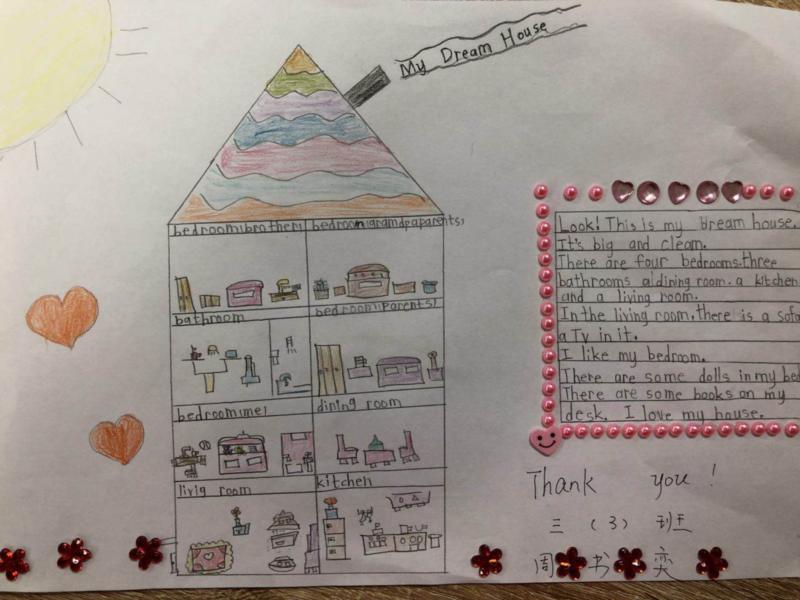 My Dream House
bedroom(brother) bedroom(grandpaparents)
bathroom bedroom(parents)
bedroom(me) dining room
livig room kitchen
Look! This is my Dream house.
It's big and clean.
There are four bedrooms.three
bathrooms a dining room. a kitchen
and a living room.
In the living room, there is a sofa
a Tv in it.
I like my bedroom.
There are some dolls in my bed
There are some books on my
desk. I love my house.
Thank you!
三（3）班
周书奕